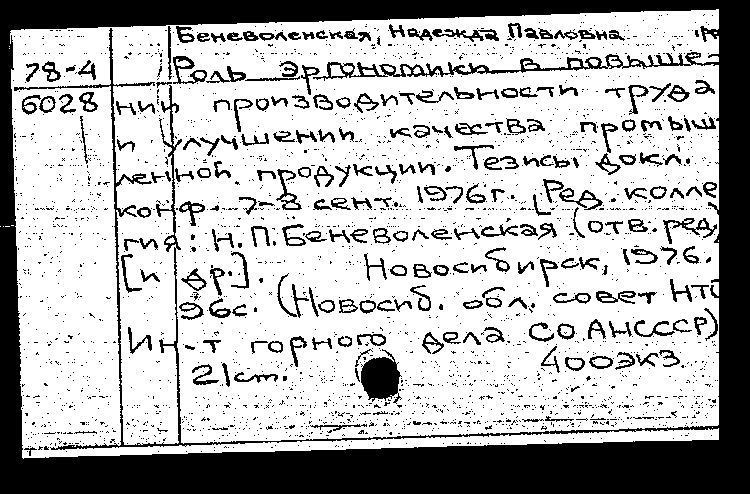 Беневоленская, Надежда Павловна
78-4 Роль эргономики в повыше-
6028 нии производительности труда
и улучшении качества промыш-
ленной продукции. Тезисы докл.
конф. 7-8 сент. 1976г. [Ред. колле
гия: Н.П.Беневоленская (отв. ред)
[и др.]. Новосибирск, 1976.
96с. (Новосиб. обл. совет НТО
Ин-т горного дела СО АНСССР)
21см. 400экз